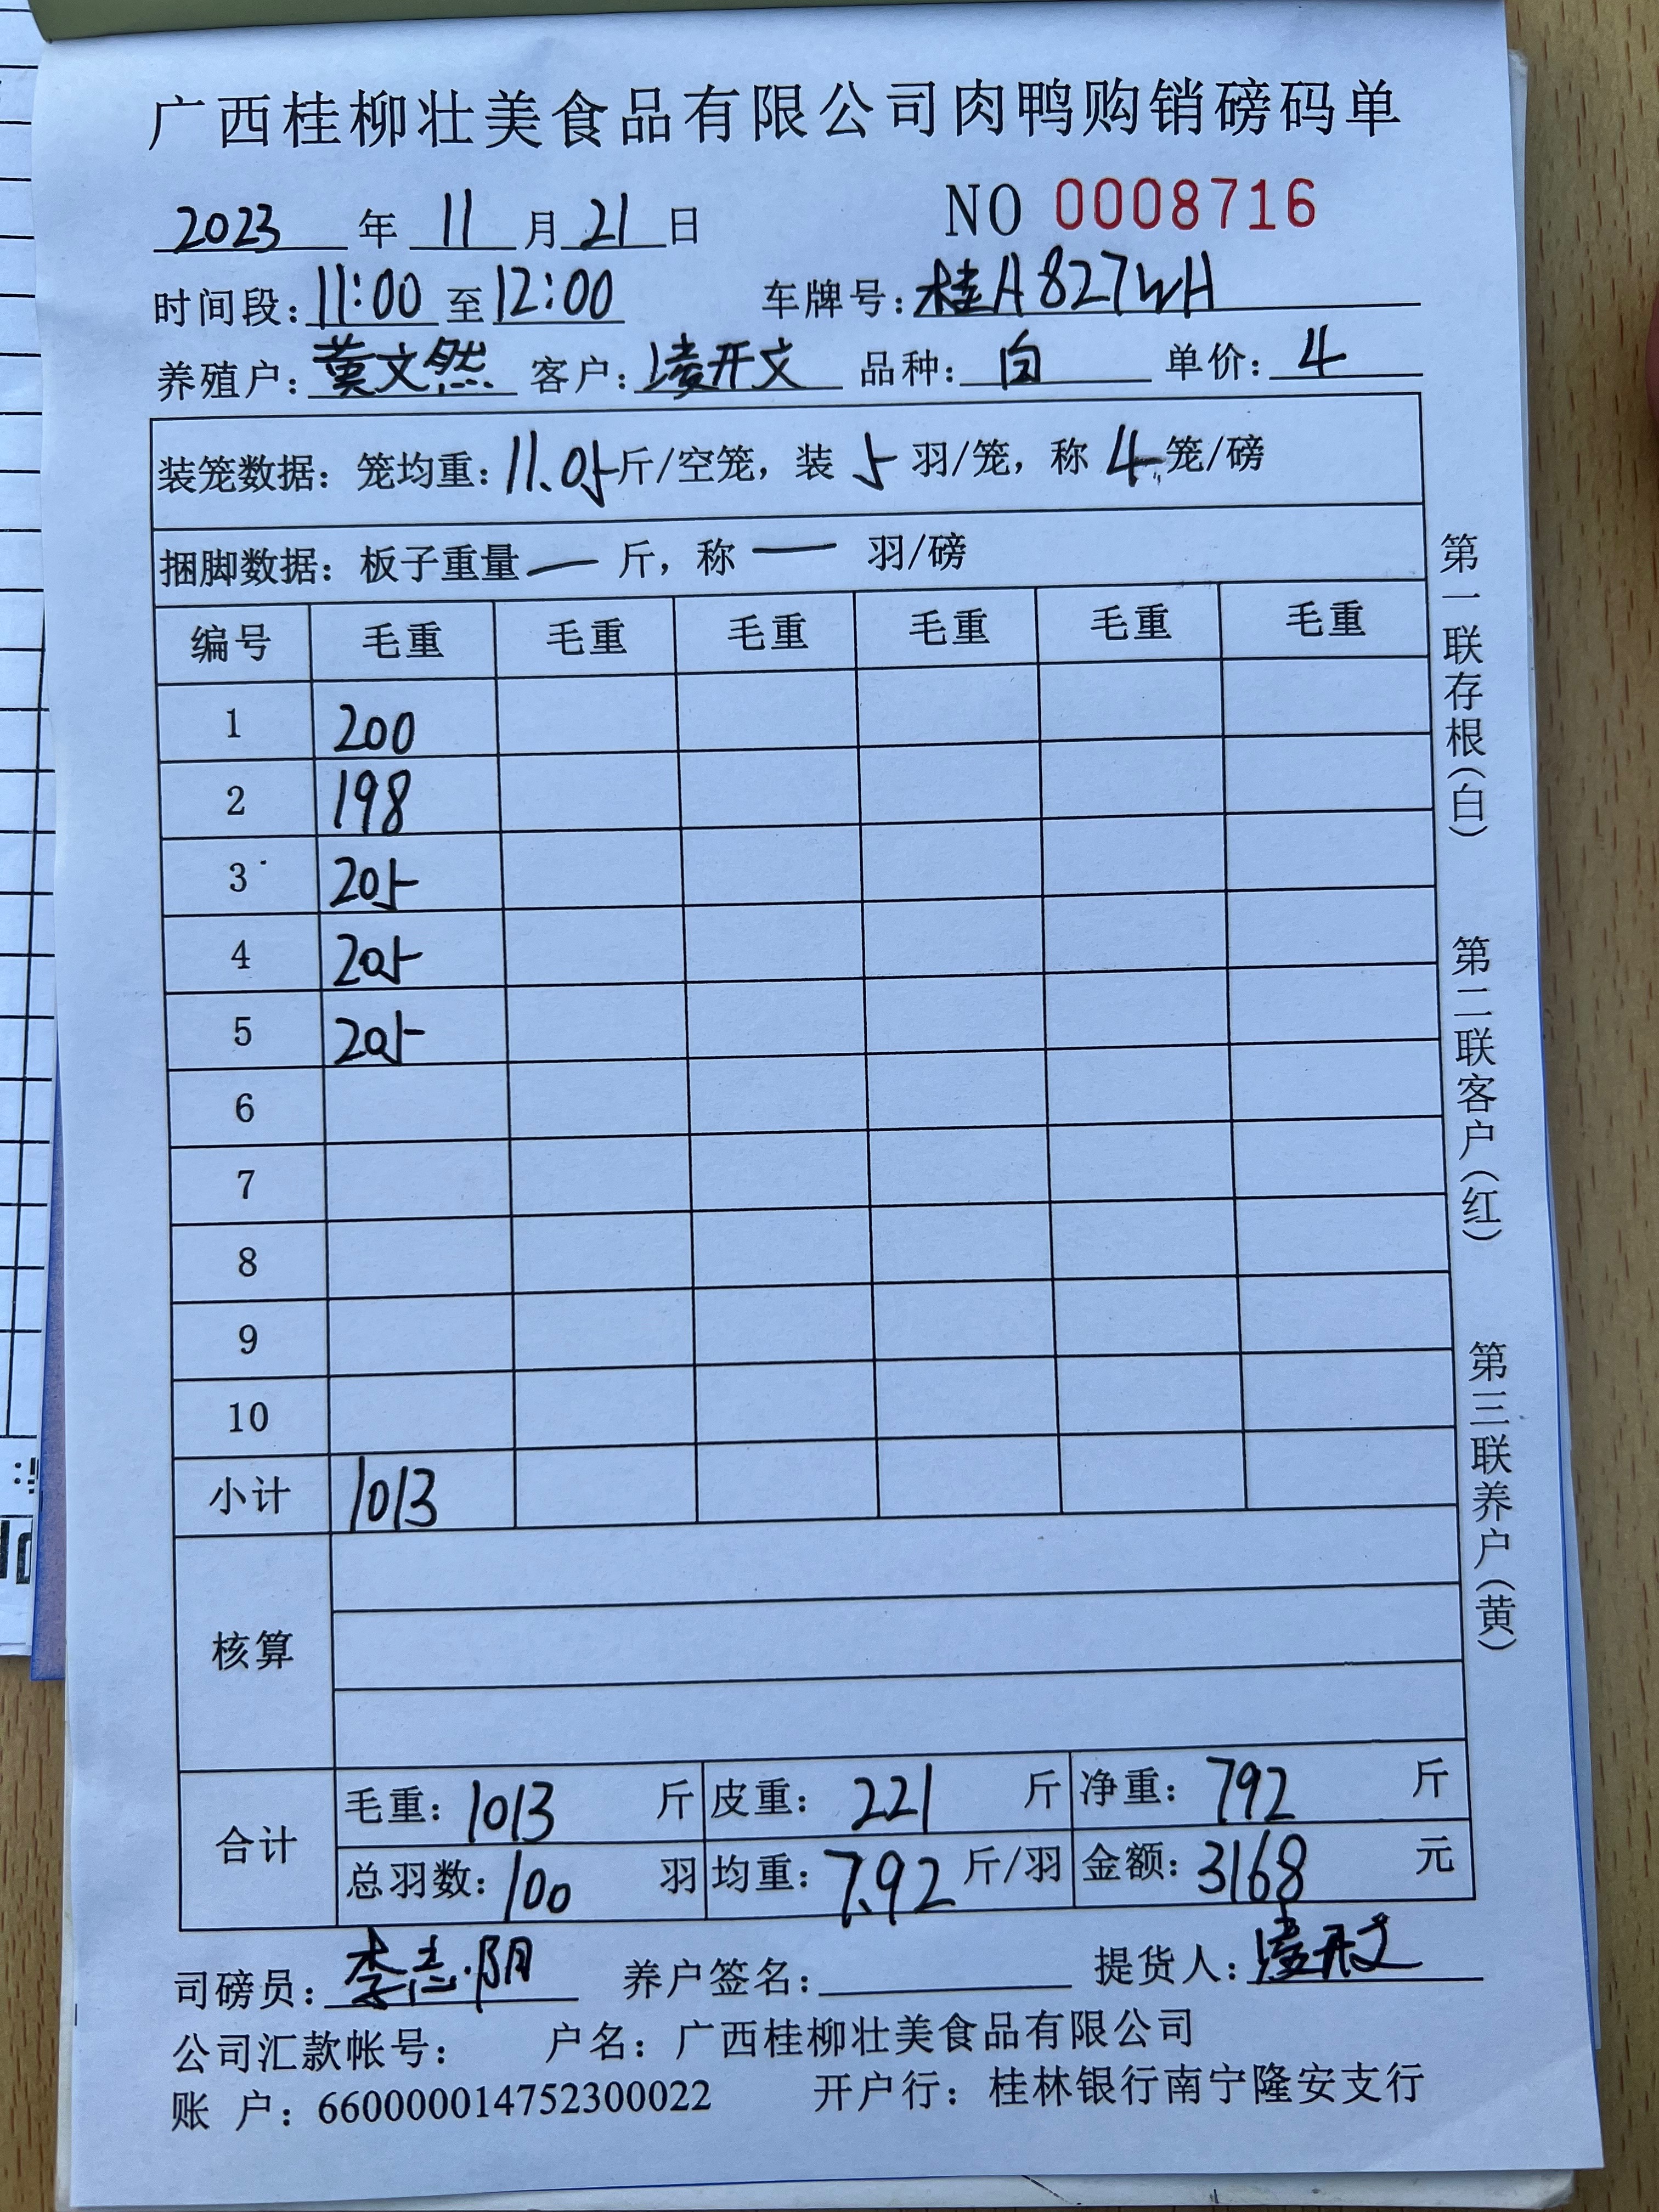 广西桂柳壮美食品有限公司肉鸭购销磅码单
2023 年 11 月 21 日 NO 0008716
时间段: 11:00 至 12:00 车牌号: 桂A827WH
养殖户: 黄文然 客户: 凌开文 品种: 白 单价: 4
装笼数据: 笼均重: 11.05 斤/空笼, 装 5 羽/笼, 称 4 笼/磅
捆脚数据: 板子重量 — 斤, 称 — 羽/磅
编号 毛重 毛重 毛重 毛重 毛重 毛重
1 200
2 198
3 205
4 205
5 205
6
7
8
9
10
小计 1013
核算
合计 毛重: 1013 斤 皮重: 221 斤 净重: 792 斤
总羽数: 100 羽 均重: 7.92 斤/羽 金额: 3168 元
司磅员: 李志阴 养户签名: 提货人: 凌开文
公司汇款帐号: 户名: 广西桂柳壮美食品有限公司
账 户: 660000014752300022 开户行: 桂林银行南宁隆安支行
第一联存根(白) 第二联客户(红) 第三联养户(黄)